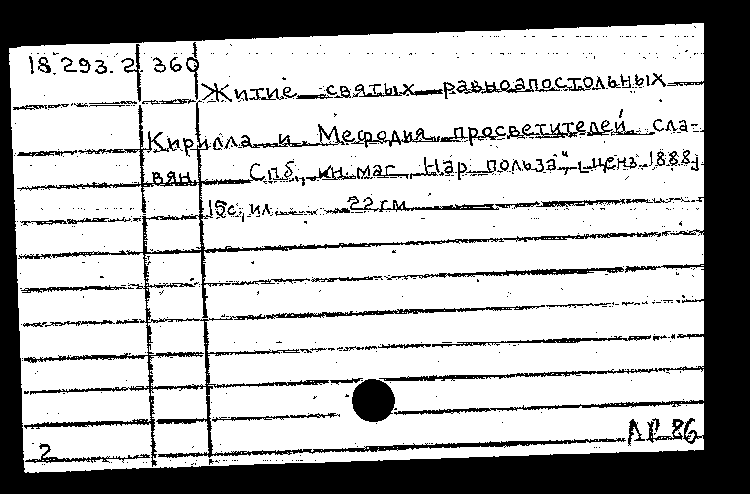 18.293.2.360
Житие святых равноапостольных
Кирилла и Мефодия просветителей сла-
вян. Спб, кн. маг. "Нар. польза", ценз. 1888.
15с, ил. 22 см
2 ЛР 86